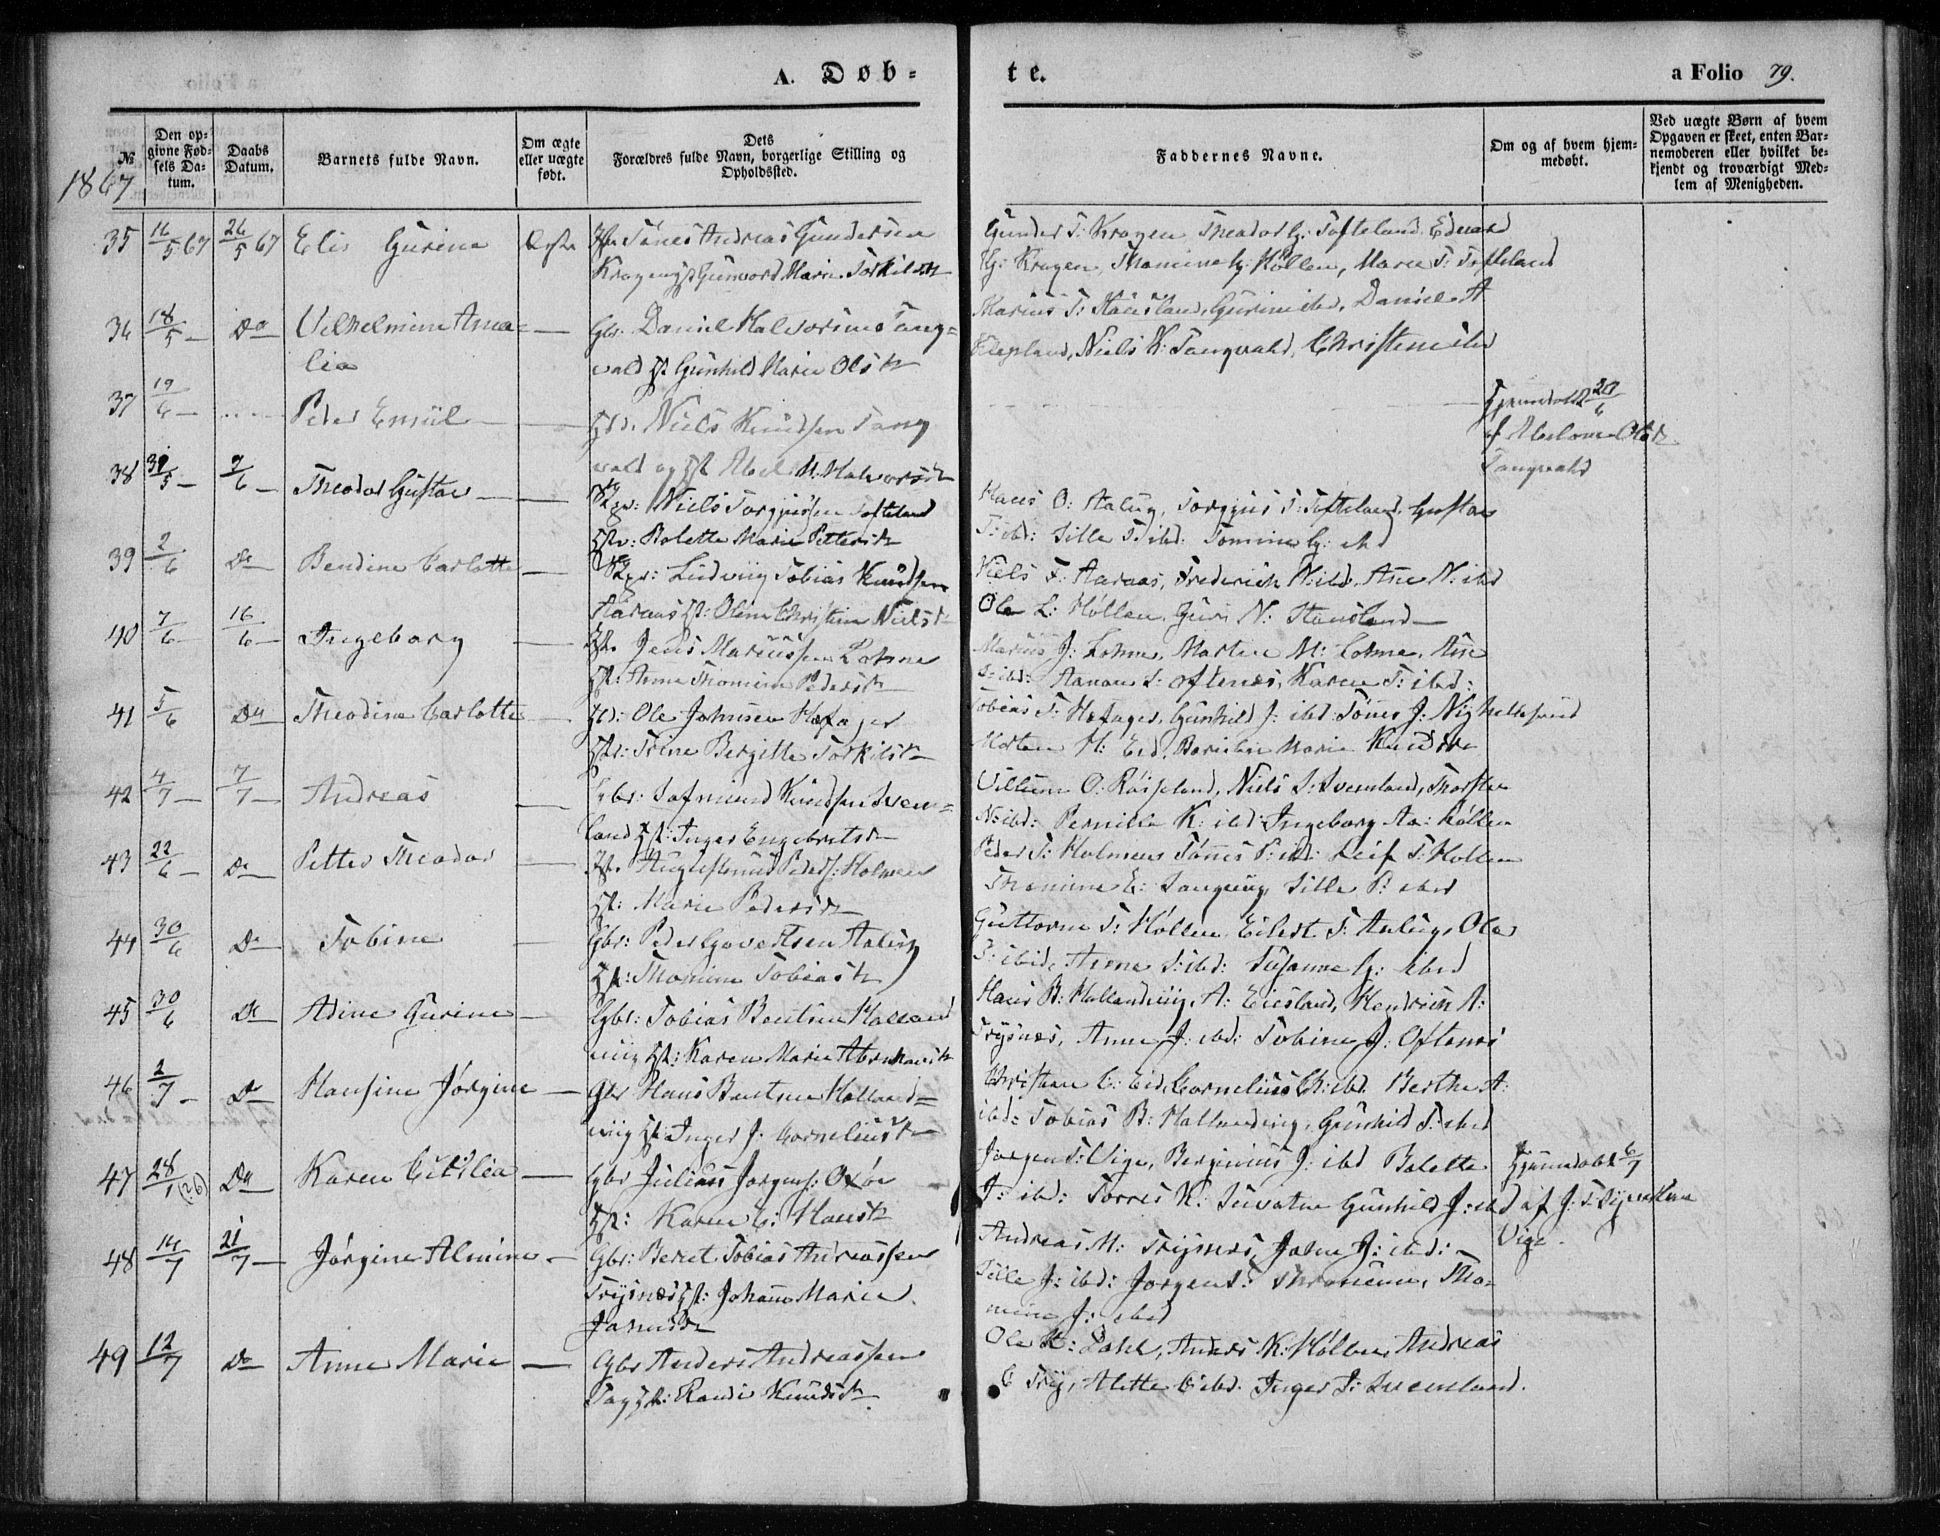 A. Døb=
te.
a Folio 79.
№
Den op=
givne Fød=
sels Da=
tum.
Daabs
Datum.
Barnets fulde Navn.
Om ægte
eller uægte
født.
Dets
Forældres fulde Navn, borgerlige Stilling og
Opholdssted.
Faddernes Navne.
Om og af hvem hjem=
medøbt.
Ved uægte Børn af hvem
Opgaven er skeet, enten Bar=
nemoderen eller hvilket be=
kjendt og troværdigt Med=
lem af Menigheden.
1867
35 16/5 67 26/5 67 Elis Gurine Tønes Andreas Gundersen
Kragen Gunvord Marie Torkilsdt
Gunder T: Kragen Theodor G: Tofteland Edvard
G: Kragen, Thomine G: Høllen, Maren T: Tofteland
36 18/5 — Do Vilhelmine Ama=
lia
Gbr. Daniel Halvorsen Tang=
vald Gunhild Marie Olsdt
Marius T: Gurine ibd, Daniel A
Niels K: Tangvald, Christence ibd
37 19/6 — Peter Emiil Niels Knudsen Tang
vald og Abel M. Halvorsdt
Hjemmedøbt 20/6
af Abelone Olsdt
Tangvald
38 30/5 — 9/6 — Theodor Gustav — Niels Torgiussen Tofteland
Bolette Marie Pettersdt
Hans O: Aalug, Torgius T: Tofteland, Gustav
T: ibd: Sille T: ibd: Tomine G: ibd
39 2/6 Do Bendine Carlotte — Ludvig Tobias Knudsen
Aaraas Oline Christine Nielsdt
Niels F: Aaraas, Frederich N: ibd, Ane N: ibd
Ole L: Høllen, Guri N: Stausland —
40 7/6 — 16/6 — Ingeborg Jens Mariussen Lohne
Anne Thomine Pedersdt
Marius J: Lohne, Marten M: Lohne, Ane
S: ibd: Aanan S: Oftenæs, Karen T: ibd:
41 5/6 Do Theodine Carlotte Ole Johnsen Høfager
Trine Bergitte Torkilsdt
Tobias T: Høfager, Gunhild J: ibd: Tønes J: Ny hellesund
Morten H: Eid, Marie Knudsdt
42 4/7 — 7/7 — Andreas Gbr: Safmund Knudsen Sven=
land Inger Engebretsdt
Villum O: Røsseland, Niels S: Svenland, Thorsten
N: ibd: Pernille K: ibd: Ingeborg Aa: Høllen
43 22/6 — Do Petter Theodor Peders: Holmen
Marie Pedersdt
Peder T: Holmen Tønes P: ibd: Leif T: Høllen
Thomine E: Langeng, Sille P: ibd
44 30/6 Do Tobine Gbr: Peder Govertsen Aalug
Thomine Tobiasdt
Guttorm T: Høllen, Eilert T: Aalug, Ole
T: ibid, Anne T: ibd: Susanne G: ibid
45 30/6 Do Adine Gurine — Gbr: Tobias Bentsen Holland=
viig Karen Marie Abrahamsdt
Hans B: Hollandviig, A: Eiesland, Hendrich A:
Trysnæs, Anne J: ibd: Tobine J: Oftenæs
46 2/7 — Do Hansine Jørgine — Gbr Hans Bentsen Holland=
viig Inger J. Corneliusdt
Christian C: Eid, Cornelius Ch: ibd. Berthe A:
ibd: Tobias B: Hollandviig, Gunhild T: ibd
47 28/1 (26) Do Karen Cicilia — Gbr Julius Jørgens: Oxøe
Karen G: Hansdt
Jørgen T: Vige, Berginius J: ibd Bolette
J: ibd: Torres K: Suvatne Gunhild J: ibd
Hjemmedøbt 6/1
af J: T:
Vige.
48 14/7 21/7 — Jørgine Almine — Gbr: Beret Tobias Andreassen
Trysnæs Johanne Marie
Jansdt
Andreas M: Trysnæs, John J: ibd:
Sille J: ibd: Jørgen S: Tho=
mine J: ibd
49 12/7 Do Anne Marie — Gbr Anders Andreassen
Randi Knudsdt.
Ole K: Dahl, Anders K: Høllen, Andreas
E Try, Alette E ibd: Inger T: Svenland.